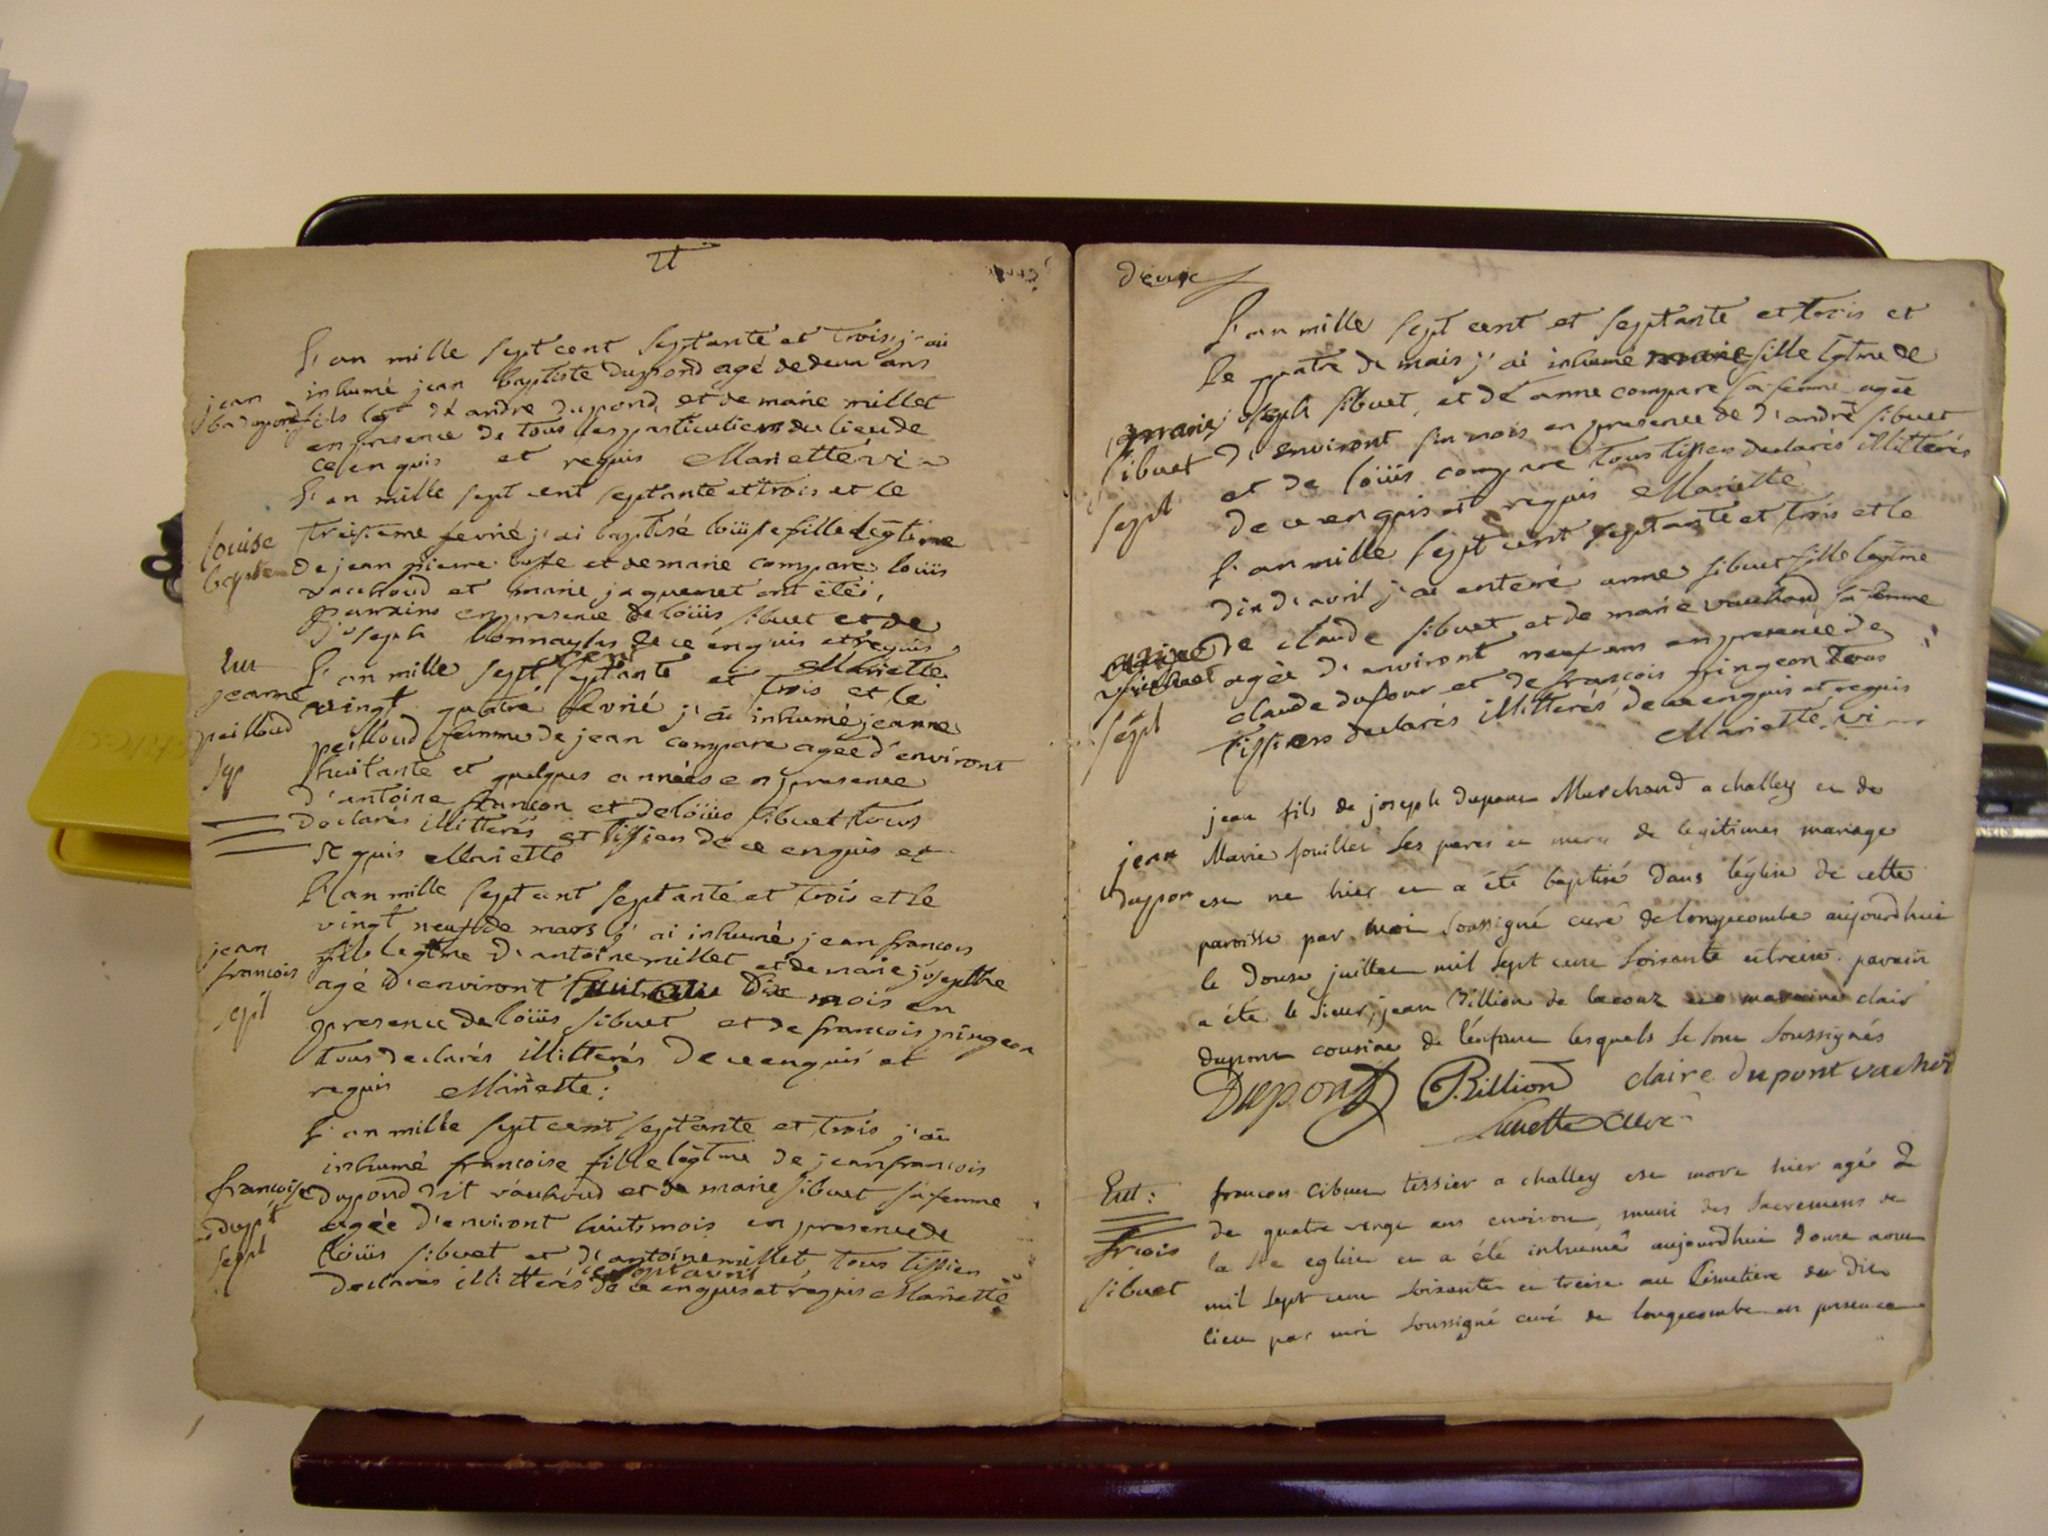 L'an mille sept cent septante et trois j'ai
inhumé jean baptiste Dupond agé de deux ans
jean
fils d'andre dupond et de marie millet
en presence de tous les particuliers du lieu de
ce enquis et requis Mariette vi
L'an mille sept cent septante et trois et le
louise
baptem
troisieme fevrié j'ai baptisé loüise fille legtime
de jean pierre et de marie compare loüis
vauchoud et marie jaquemet ont étéi,
parrains en presence de loüis sibuet et de
joseph de ce enquis et requis
Mariette
Ent
jeanne
peilloud
sep
L'an mille sept cent septante et trois et le
vingt quatre fevrié j'ai inhumé jeanne
peilloud femme de jean compare agée d'environt
huitante et quelques années en presence
d'antoine françon et de loüis sibuet tous
declarés illitterés et tissien de ce enquis et
requis Mariette
L'an mille sept cent septante et trois et le
vingt neuf de mars j'ai inhumé jean francois
jean
francois
sept
fils legtme d'antoine millet et de marie josepthe
agé d'environt dix mois en
presence de loüis sibuet et de francois pringeon
tous declarés illitterés de ce enquis et
requis Mariette:
L'an mille sept cent septante et trois j'ai
inhumé francoise fille legtme de jean francois
francoise
dupt
sept
dupond dit vauchoud et de marie sibuet sa femme
agée d'environt huit mois en presence de
loüis sibuet et d'antoine millet, tous tissien
le sept avril
declarés illitterés de ce enquis et requis Mariette
deuxe
L'an mille sept cent et septante et trois et
le quatre de mais j'ai inhumé marie fille lgtme de
marie
sibuet
sept
joseph sibuet, et de anne compare sa femme agée
d'environt six mois en presence de d'andré sibuet
et de loüis compare tous tissien declarés illitterés
de ce enquis et requis Mariette
L'an mille sept cent septante et trois et le
dix d'avril j'ai enterré anne sibuet fille legtme
sibuet
sept
de claude sibuet et de marie vauchoud sa femme
agée d'environt neuf ans en presence de
claude dufour et de francois pringeon tous
tissiens declarés illitterés de ce enquis et requis
Mariette vi
jean fils de joseph dupont Marchand a challey et de
jean
dupon
Marie fouillet ses peres et meres de legitimes mariage
est ne hier et a été baptisé dans l'église de cette
paroisse par moi soussigné curé de longecombe aujourdhui
le douse juillet mil sept cent soisante et treise. parain
a été le sieur jean Billion de lacoux et maraine clair
dupont cousine de l'enfant lesquels se sont soussignés
Dupont Billion claire dupont vachoz
curé
Ent:
frcois
sibuet
francois cibuet tissier a challey est mort hier agé
de quatre vingt ans environ, muni des Sacremens de
la Ste eglise et a été inhumé aujourdhui douse aout
mil sept cent soisante et treise au Cimetiere du dit
lieu par moi soussigné curé de longecombe en presence